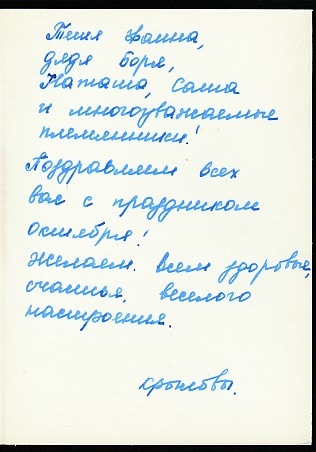 Тётя Фаина,
дядя Боря,
Наташа, Саша
и многоуважаемые
племянники!
Поздравляем всех
вас с праздником
октября!
Желаем всем здоровья,
счастья, веселого
настроения.
Крыловы.